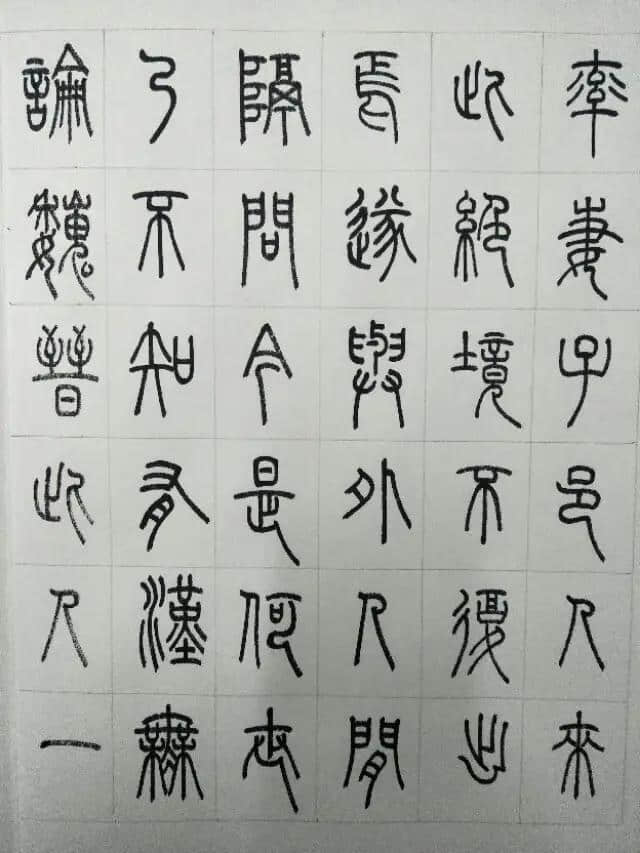 率妻子邑人來
此絕境不復出
焉遂與外人閒
隔問今是何世
乃不知有漢無
論魏晉此人一